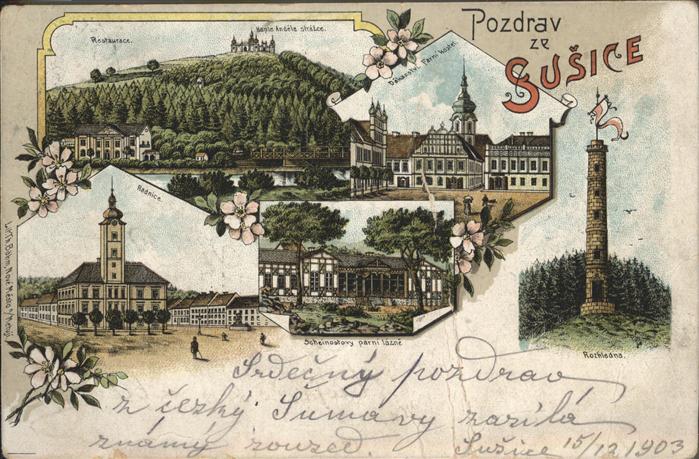 Pozdrav
ze
SUŠICE
Restaurace.
Kaple Anděla strážce.
Děkanství. Farní kostel.
Radnice.
Scheinostovy parní lázně
Rozhledna.
Lit. Th. Böhm, Nové Město n/Metují.
Srdečný pozdrav
z český Šumavy zasílá
známý soused.
Sušice 15/12 1903